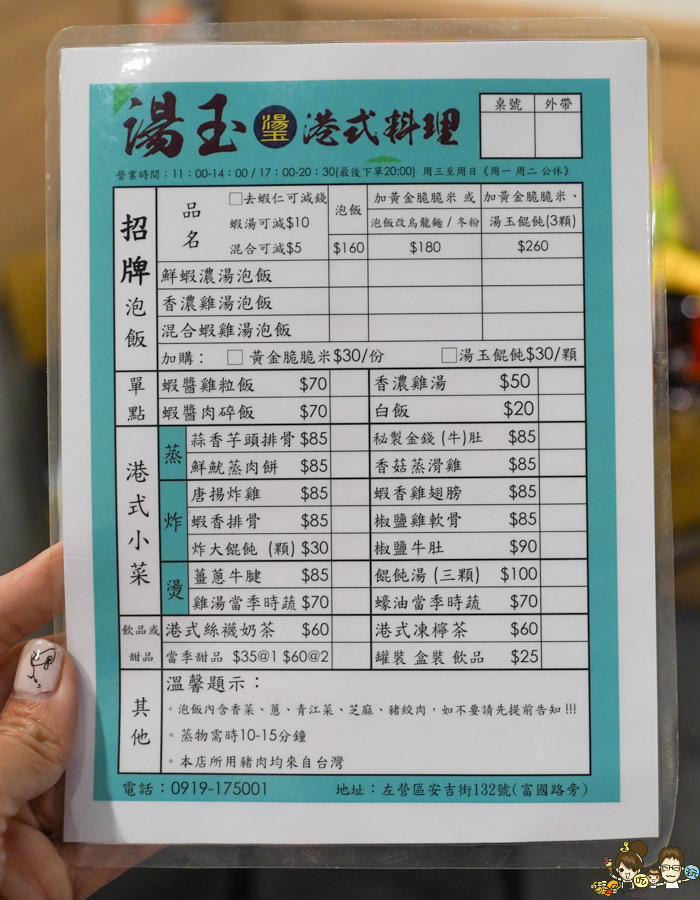 湯玉 湯玉 港式料理
桌號 外帶
營業時間：11：00-14：00 / 17：00-20：30(最後下單20:00) 周三至周日《周一 周二 公休》
招牌泡飯
品名
□去蝦仁可減錢
蝦湯可減$10
混合可減$5
泡飯
加黃金脆脆米 或
泡飯改烏龍麵 / 冬粉
加黃金脆脆米、
湯玉餛飩(3顆)
$160 $180 $260
鮮蝦濃湯泡飯
香濃雞湯泡飯
混合蝦雞湯泡飯
加購： □ 黃金脆脆米$30/份 □湯玉餛飩$30/顆
單點
蝦醬雞粒飯 $70 香濃雞湯 $50
蝦醬肉碎飯 $70 白飯 $20
港式小菜
蒸
蒜香芋頭排骨 $85 秘製金錢 (牛)肚 $85
鮮魷蒸肉餅 $85 香菇蒸滑雞 $85
炸
唐揚炸雞 $85 蝦香雞翅膀 $85
蝦香排骨 $85 椒鹽雞軟骨 $85
炸大餛飩 (顆) $30 椒鹽牛肚 $90
燙
薑蔥牛腱 $85 餛飩湯 (三顆) $100
雞湯當季時蔬 $70 蠔油當季時蔬 $70
飲品或甜品
港式絲襪奶茶 $60 港式凍檸茶 $60
當季甜品 $35@1 $60@2 罐裝 盒裝 飲品 $25
其他
溫馨題示：
。泡飯內含香菜、蔥、青江菜、芝麻、豬絞肉，如不要請先提前告知 !!!
。蒸物需時10-15分鐘
。本店所用豬肉均來自台灣
電話：0919-175001 地址：左營區安吉街132號(富國路旁)